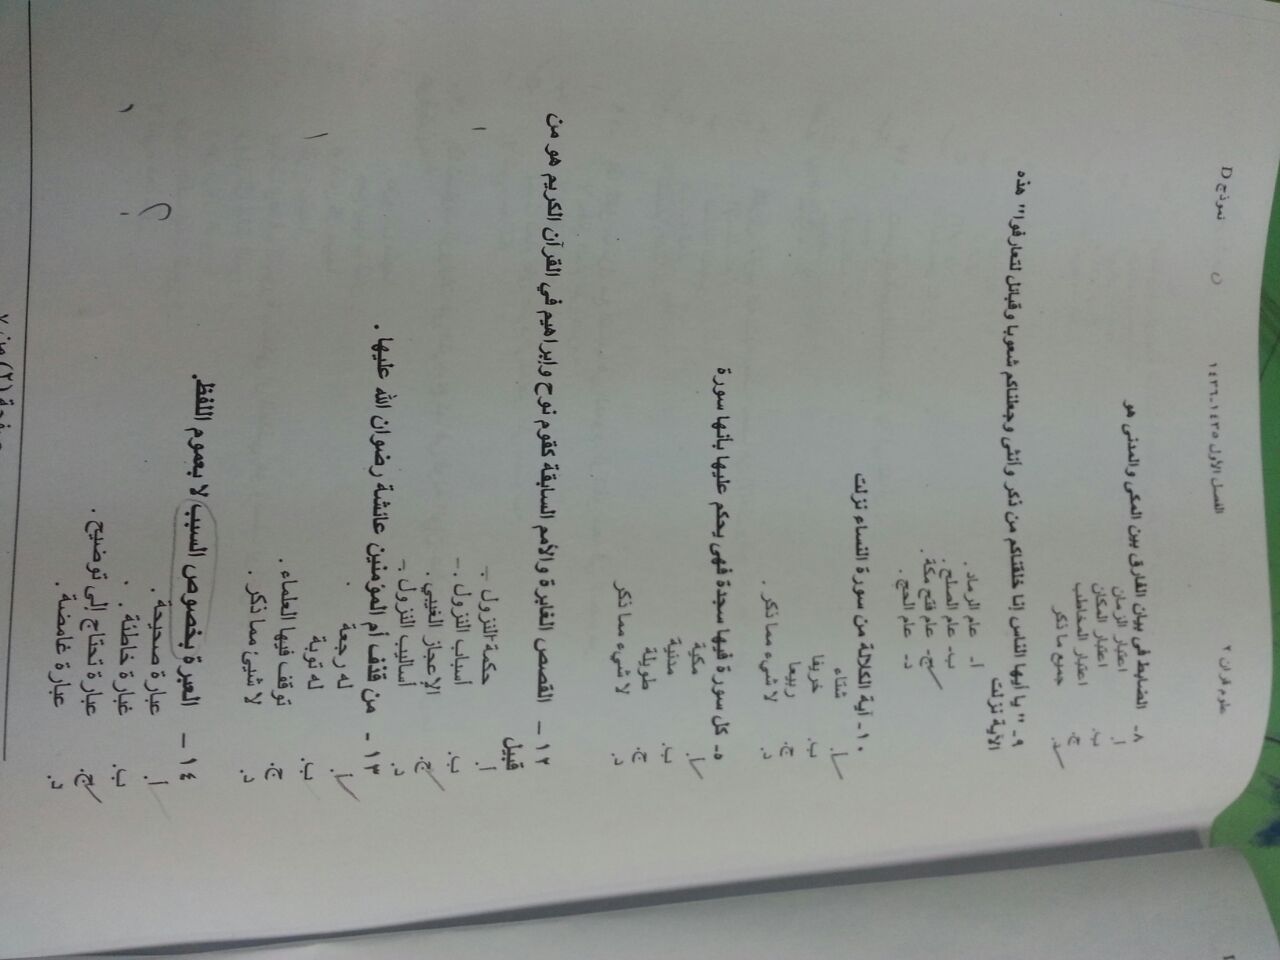 علوم قرآن ٢ الفصل الأول ١٤٣٥-١٤٣٦ نموذج D
٨- الضابط فى بيان الفارق بين المكى والمدنى هو
أ. اعتبار الزمان
ب. اعتبار المكان
ج. اعتبار المخاطب
د. جميع ما ذكر
٩- " يا أيها الناس إنا خلقناكم من ذكر وأنثى وجعلناكم شعوبا وقبائل لتعارفوا" هذه
الآية نزلت
أ- عام الرماد .
ب- عام الصلح .
ج- عام فتح مكة .
د- عام الحج .
١٠- آية الكلالة من سورة النساء نزلت
أ. شتاء
ب. خريفا
ج. ربيعا
د. لا شيء مما ذكر .
٥- كل سورة فيها سجدة فهى يحكم عليها بأنها سورة
أ. مكية
ب. مدنية
ج. طويلة
د. لا شيء مما ذكر
١٢ – القصص الغابرة والأمم السابقة كقوم نوح وإبراهيم في القرآن الكريم هو من
قبيل
أ. حكمة النزول .
ب. أسباب النزول .
ج. الإعجاز الغيبي .
د. أساليب النزول .
١٣ - من قذف أم المؤمنين عائشة رضوان الله عليها .
أ. له رجعة .
ب. له توبة
ج. توقف فيها العلماء .
د. لا شيئ مما ذكر .
١٤ – العبرة بخصوص السبب لا بعموم اللفظ.
أ. عبارة صحيحة .
ب. عبارة خاطئة .
ج. عبارة تحتاج إلى توضيح .
د. عبارة غامضة .
صفحة (٢) من ٧